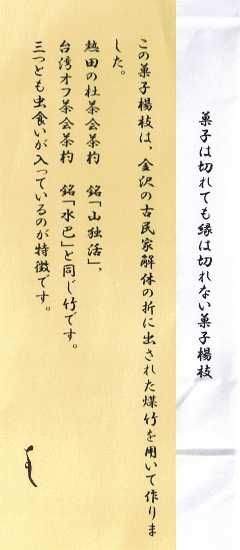 菓子は切れても縁は切れない菓子楊枝
この菓子楊枝は、金沢の古民家解体の折に出された煤竹を用いて作りま
した。
熱田の杜茶会茶杓　銘「山独活」、
台湾オフ茶会茶杓　銘「水巴」と同じ竹です。
三つとも虫食いが入っているのが特徴です。